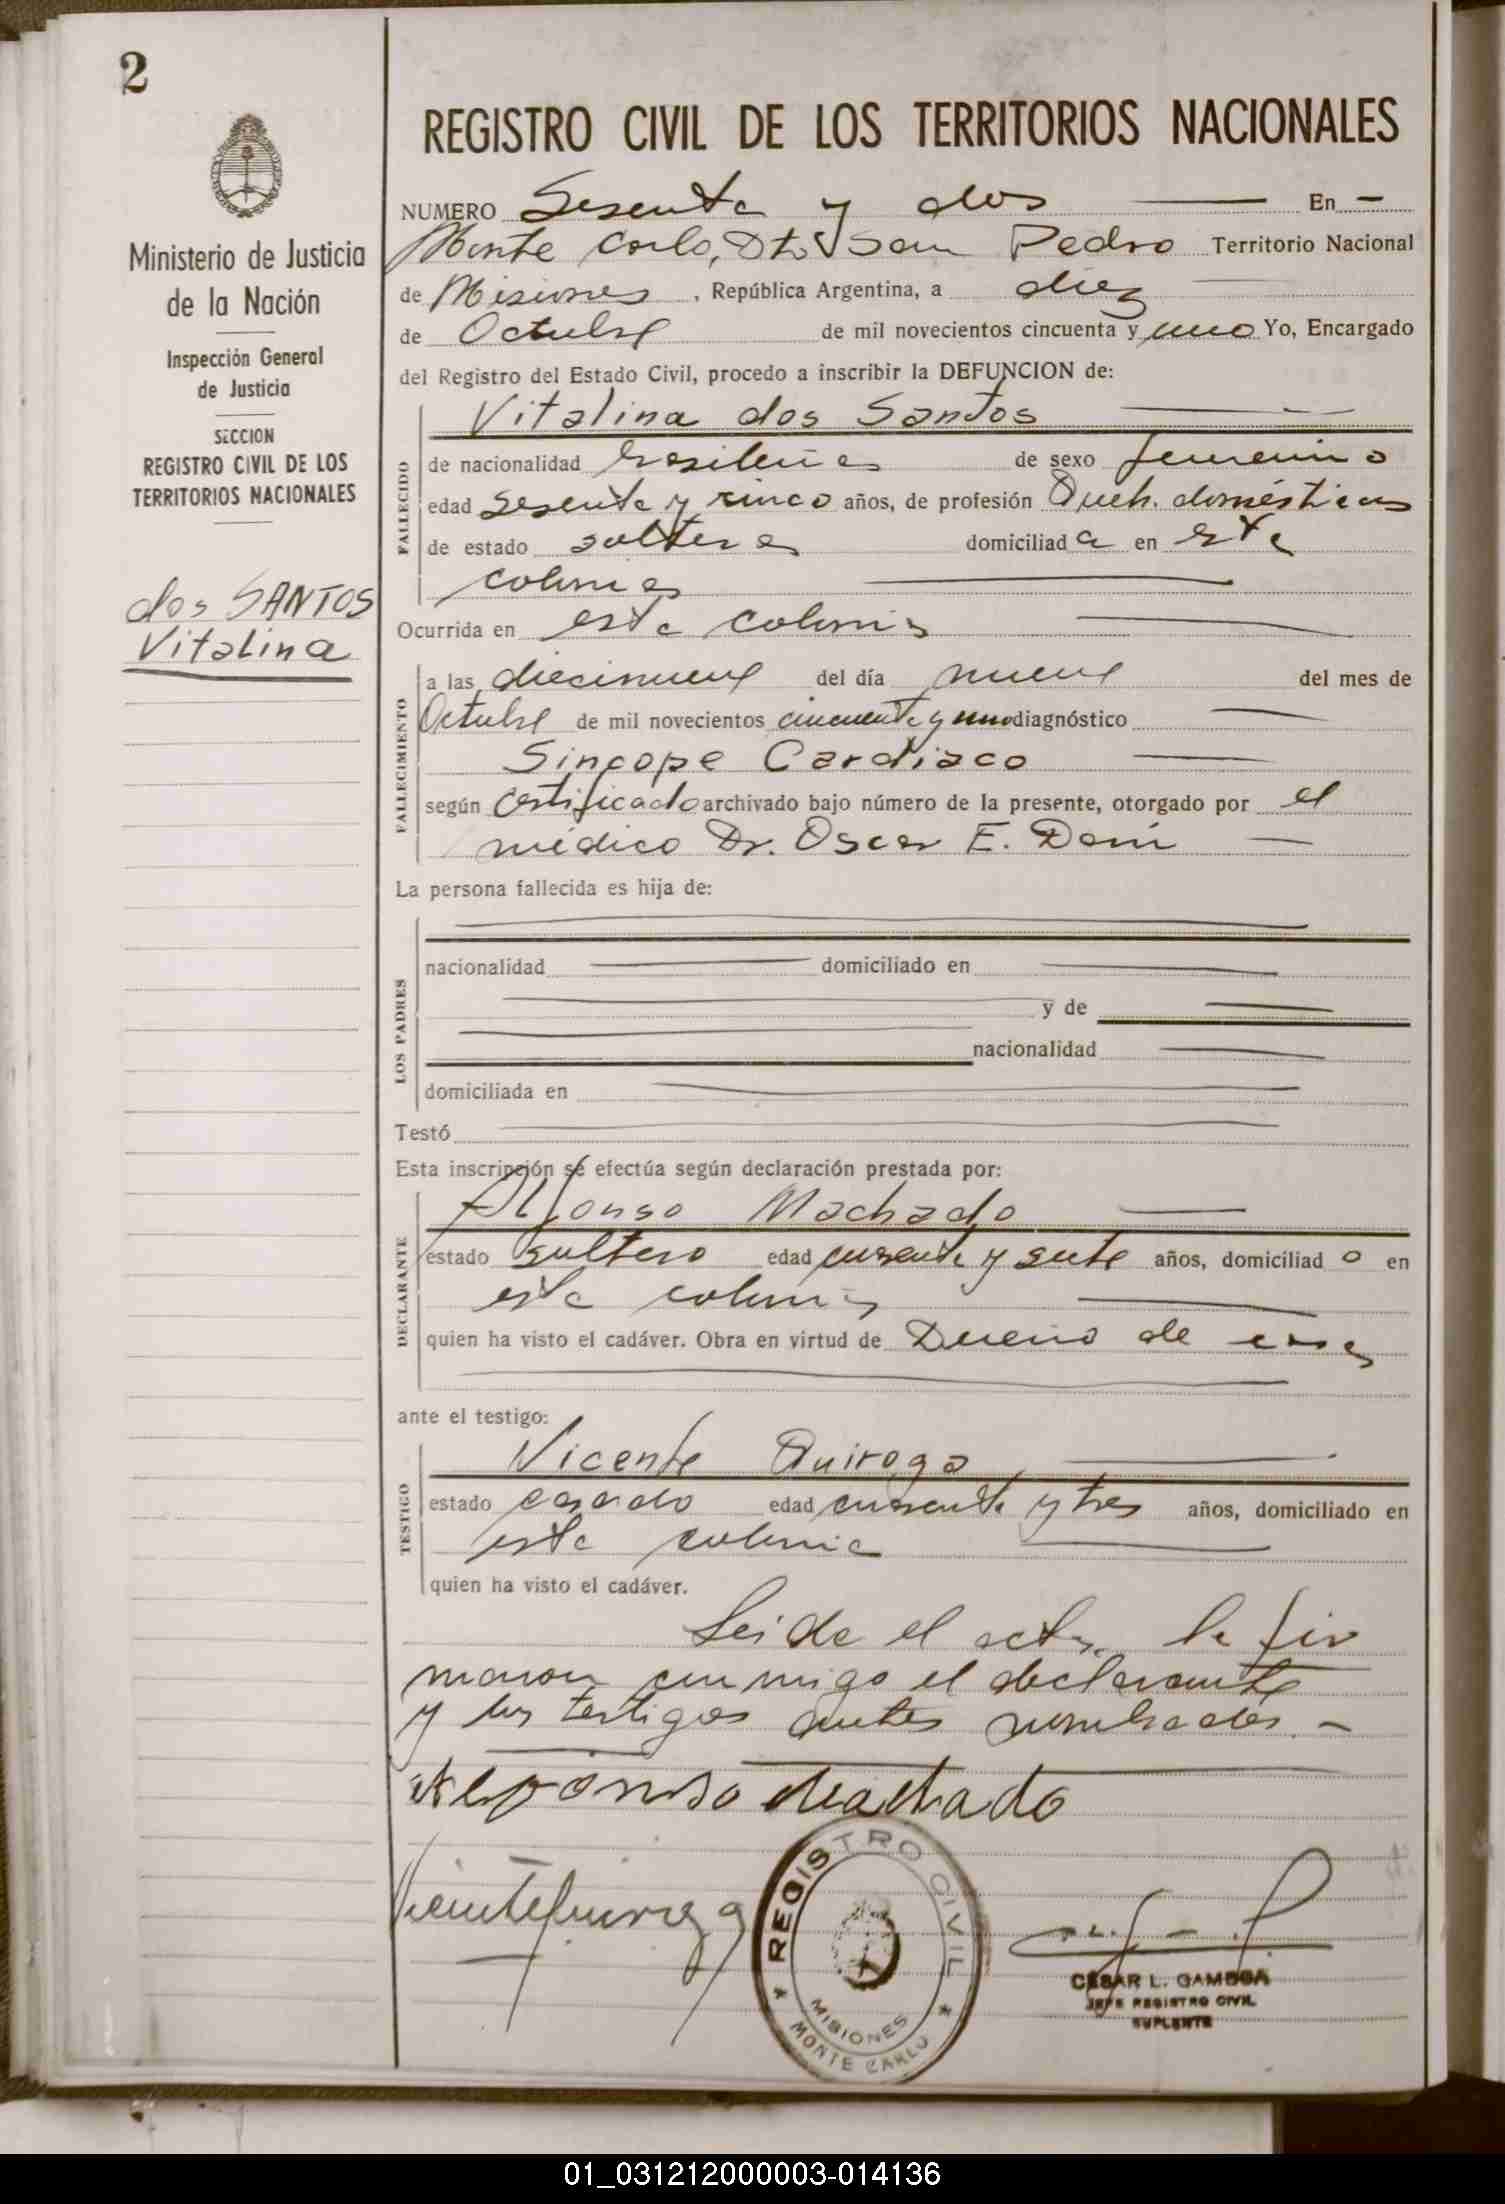 2
REGISTRO CIVIL DE LOS TERRITORIOS NACIONALES
Ministerio de Justicia
de la Nación
Inspección General
de Justicia
SECCION
REGISTRO CIVIL DE LOS
TERRITORIOS NACIONALES
dos SANTOS
Vitalina
NUMERO Sesenta y dos En
Monte Carlo, Dto San Pedro Territorio Nacional
de Misiones, República Argentina, a diez
de Octubre de mil novecientos cincuenta y uno Yo, Encargado
del Registro del Estado Civil, procedo a inscribir la DEFUNCION de:
Vitalina dos Santos
FALLECIDO
de nacionalidad brasileña de sexo femenino
edad sesenta y cinco años, de profesión Queh. domésticos
de estado soltera domiciliada en esta
colonia
Ocurrida en esta colonia
FALLECIMIENTO
a las diecinueve del día nueve del mes de
Octubre de mil novecientos cincuenta y uno diagnóstico
Sincope Cardiaco
según Certificado archivado bajo número de la presente, otorgado por el
médico Dr. Oscar E.
La persona fallecida es hija de:
LOS PADRES
nacionalidad domiciliado en
y de
nacionalidad
domiciliada en
Testó
Esta inscripción se efectúa según declaración prestada por:
DECLARANTE
Alfonso Machado
estado soltero edad cuarenta y siete años, domiciliado en
esta colonia
quien ha visto el cadáver. Obra en virtud de Dueño de casa
ante el testigo:
TESTIGO
Vicente Quiroga
estado casado edad cuarenta y tres años, domiciliado en
esta colonia
quien ha visto el cadáver.
Leida el acta, la fir
maron conmigo el declarante
y los testigos antes nombrados.-
Alfonso Machado
Vicente Quiroga
REGISTRO CIVIL
MISIONES
MONTE CARLO
CESAR L. GAMBOA
JEFE REGISTRO CIVIL
SUPLENTE
01_031212000003-014136